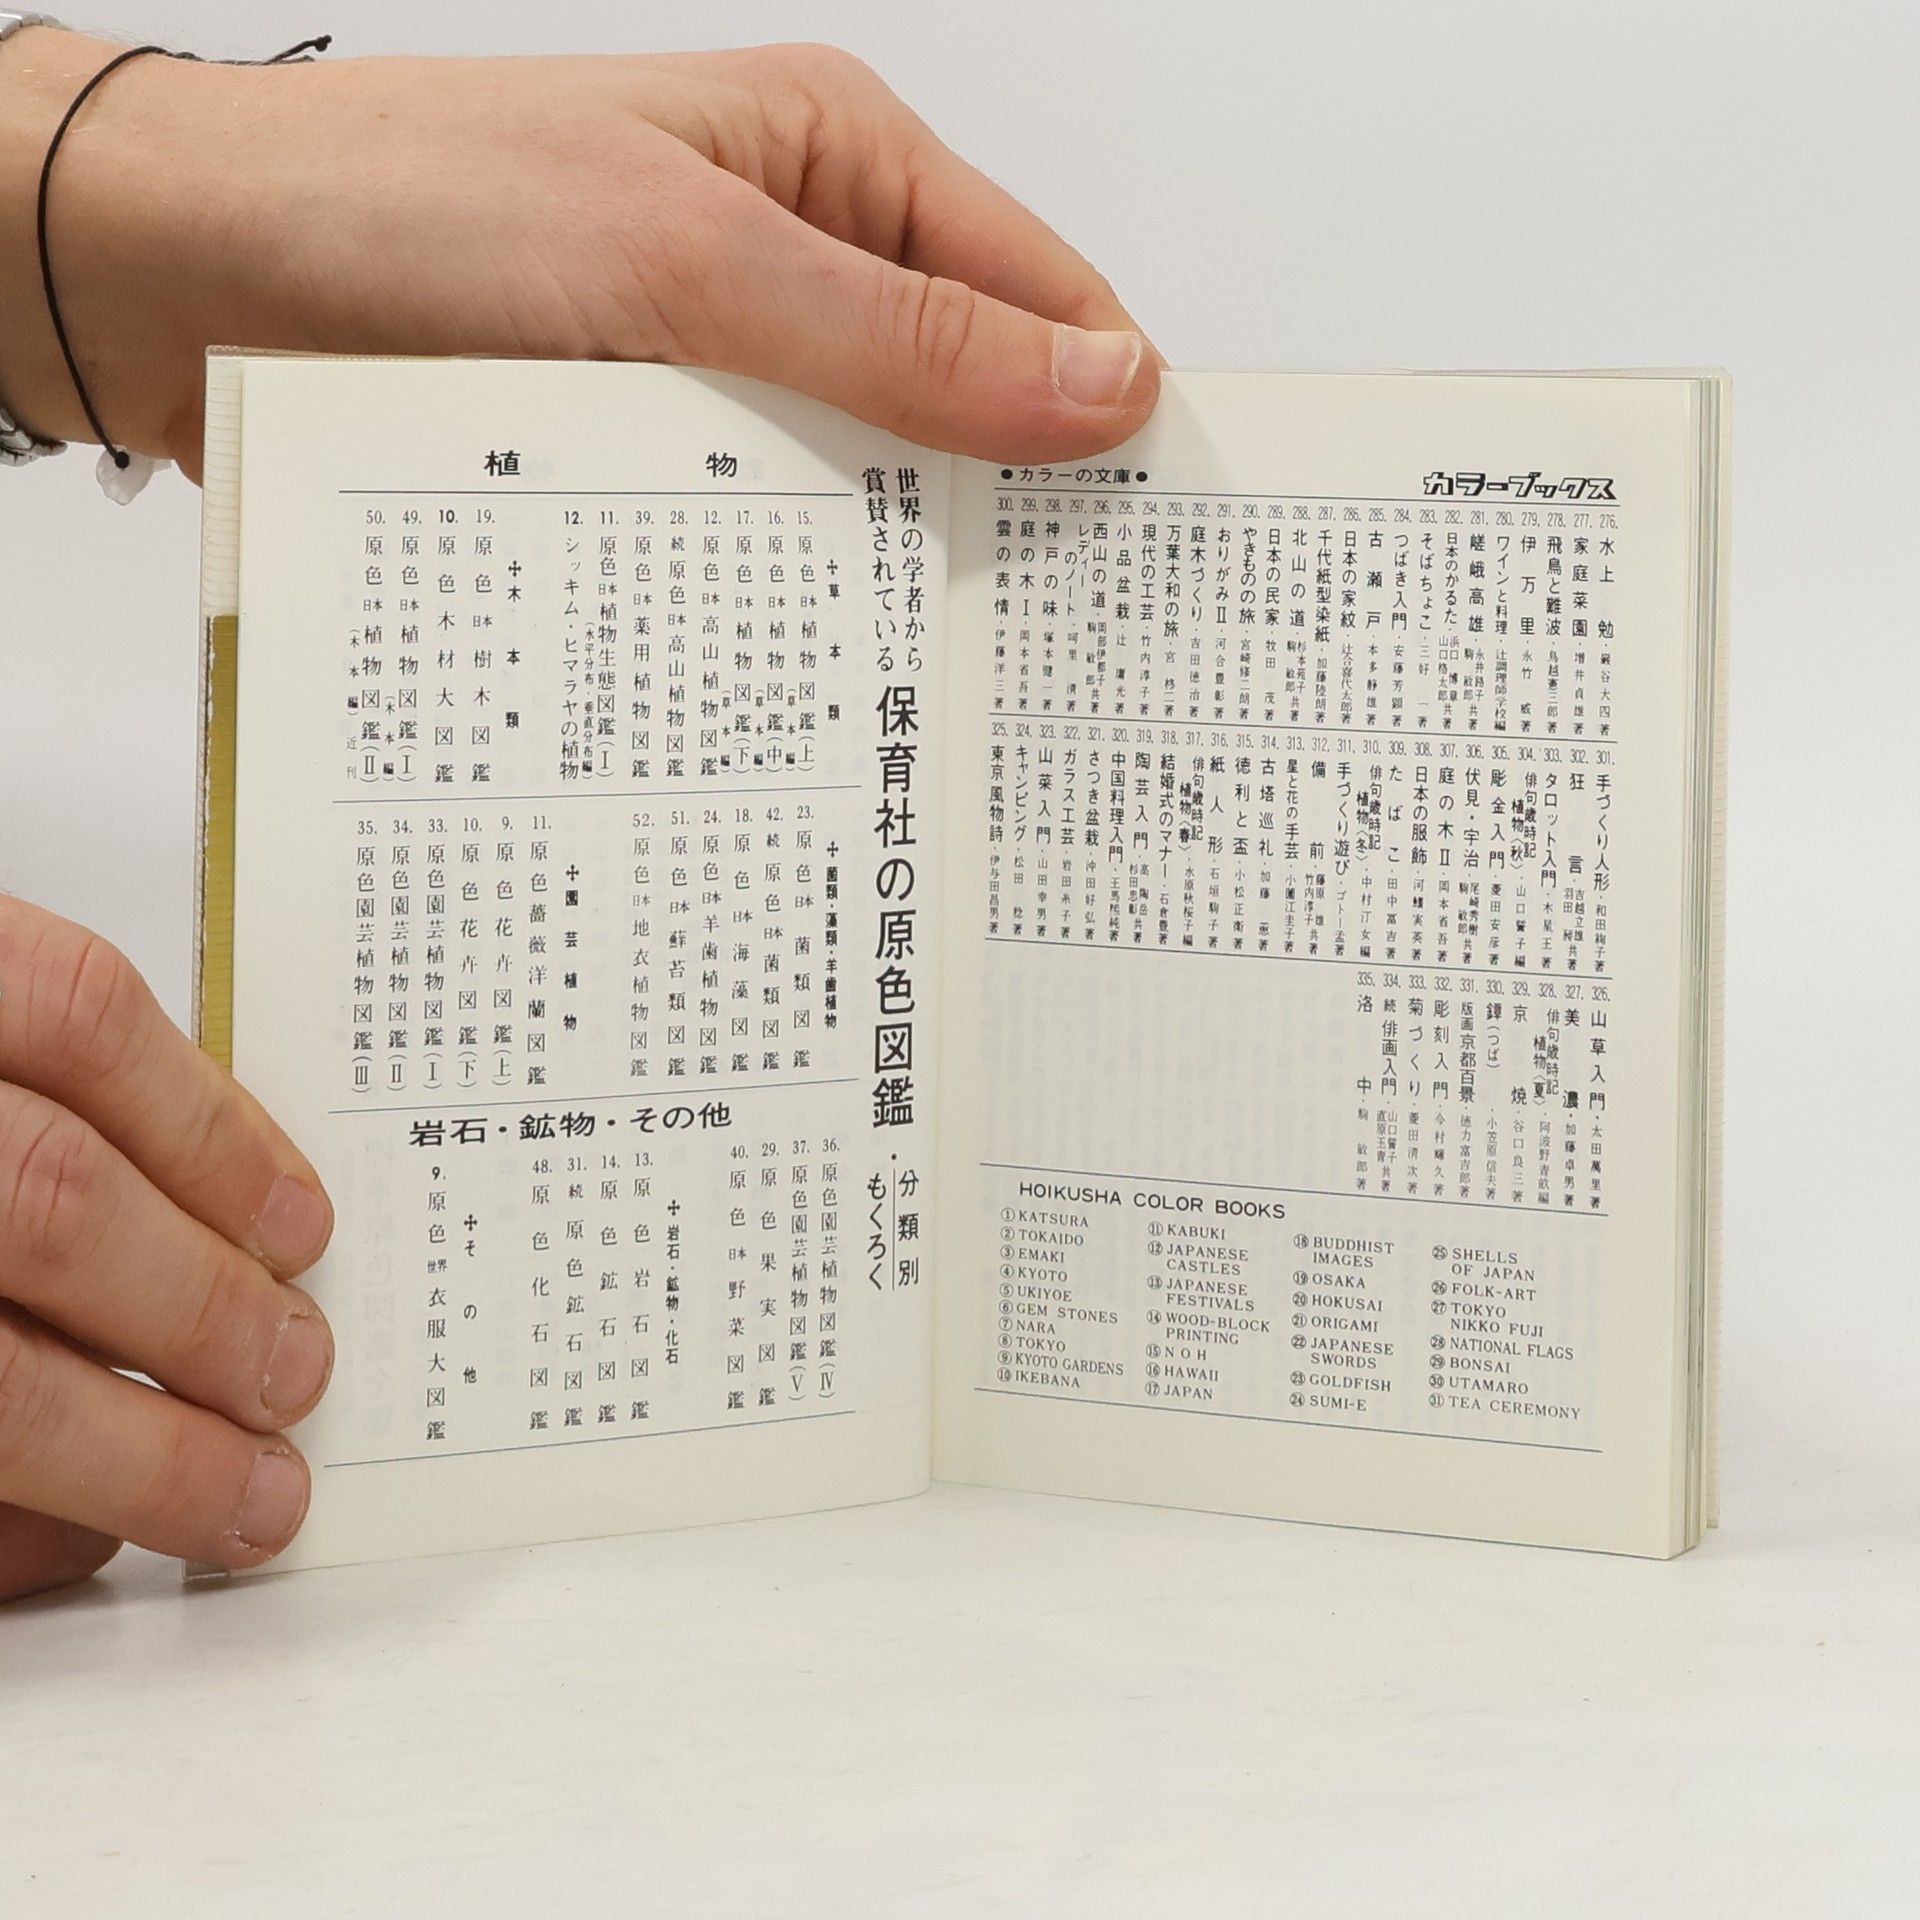 世界の学者から
賞賛されている
保育社の原色図鑑・
分類別
もくろく
植物
✢草本類
15.原色日本植物図鑑(草本編)(上)
16.原色日本植物図鑑(草本編)(中)
17.原色日本植物図鑑(草本編)(下)
12.原色日本高山植物図鑑
28.続原色日本高山植物図鑑
39.原色日本薬用植物図鑑
11.原色日本植物生態図鑑(Ⅰ)(水平分布・垂直分布編)
12.シッキム・ヒマラヤの植物
✢木本類
19.原色日本樹木図鑑
10.原色木材大図鑑
49.原色日本植物図鑑(木本編)(Ⅰ)
50.原色日本植物図鑑(木本編)(Ⅱ)近刊
✢菌類・藻類・羊歯植物
23.原色日本菌類図鑑
42.続原色日本菌類図鑑
18.原色日本海藻図鑑
24.原色日本羊歯植物図鑑
51.原色日本蘚苔類図鑑
52.原色日本地衣植物図鑑
✢園芸植物
11.原色薔薇洋蘭図鑑
9.原色花卉図鑑(上)
10.原色花卉図鑑(下)
33.原色園芸植物図鑑(Ⅰ)
34.原色園芸植物図鑑(Ⅱ)
35.原色園芸植物図鑑(Ⅲ)
36.原色園芸植物図鑑(Ⅳ)
37.原色園芸植物図鑑(Ⅴ)
29.原色果実図鑑
40.原色日本野菜図鑑
岩石・鉱物・その他
✢岩石・鉱物・化石
13.原色岩石図鑑
14.原色鉱石図鑑
31.続原色鉱石図鑑
48.原色化石図鑑
✢その他
9.原色世界衣服大図鑑
●カラーの文庫●
カラーブックス
276.水上勉・巌谷大四著
277.家庭菜園・増井貞雄著
278.飛鳥と難波・鳥越憲三郎著
279.伊万里・永竹威著
280.ワインと料理・辻調理師学校編
281.嵯峨高雄・永井路子 駒敏郎共著
282.日本のかるた・浜口博章 山口格太郎共著
283.そばちょこ・三好一著
284.つばき入門・安藤芳顕著
285.古瀬戸・本多静雄著
286.日本の家紋・辻合喜代太郎著
287.千代紙型染紙・加藤陸朗著
288.北山の道・杉本苑子 駒敏郎共著
289.日本の民家・牧田茂著
290.やきものの旅・宮崎修二朗著
291.おりがみⅡ・河合豊彰著
292.庭木づくり・吉田徳治著
293.万葉大和の旅・宮柊二著
294.現代の工芸・竹内淳子著
295.小品盆栽・辻庸光著
296.西山の道・岡部伊都子 駒敏郎共著
297.レディーのノート・呵里清著
298.神戸の味・塚本健一著
299.庭の木Ⅰ・岡本省吾著
300.雲の表情・伊藤洋三著
301.手づくり人形・和田絢子著
302.狂言・吉越立雄 羽田昶共著
303.タロット入門・木星王著
304.俳句歳時記植物〈秋〉・山口誓子編
305.彫金入門・菱田安彦著
306.伏見・宇治・尾崎秀樹 駒敏郎共著
307.庭の木Ⅱ・岡本省吾著
308.日本の服飾・河鰭実英著
309.たばこ・田中冨吉著
310.俳句歳時記植物〈冬〉・中村汀女編
311.手づくり遊び・ゴトー孟著
312.備前・藤原雄 竹内淳子共著
313.星と花の手芸・小薗江圭子著
314.古塔巡礼・加藤蕙著
315.徳利と盃・小松正衛著
316.紙人形・石垣駒子著
317.俳句歳時記植物〈春〉・水原秋桜子編
318.結婚式のマナー・石倉豊著
319.陶芸入門・高陶岳 杉田忠彰共著
320.中国料理入門・王馬熙純著
321.さつき盆栽・沖田好弘著
322.ガラス工芸・岩田糸子著
323.山菜入門・山田幸男著
324.キャンピング・松田稔著
325.東京風物詩・伊与田昌男著
326.山草入門・太田萬里著
327.美濃・加藤卓男著
328.俳句歳時記植物〈夏〉・阿波野青畝編
329.京焼・谷口良三著
330.鐔(つば)・小笠原信夫著
331.版画京都百景・徳力富吉郎著
332.彫刻入門・今村輝久著
333.菊づくり・菱田清次著
334.続俳画入門・山口誓子 直原玉青共著
335.洛中・駒敏郎著
HOIKUSHA COLOR BOOKS
①KATSURA
②TOKAIDO
③EMAKI
④KYOTO
⑤UKIYOE
⑥GEM STONES
⑦NARA
⑧TOKYO
⑨KYOTO GARDENS
⑩IKEBANA
⑪KABUKI
⑫JAPANESE
CASTLES
⑬JAPANESE
FESTIVALS
⑭WOOD-BLOCK
PRINTING
⑮NOH
⑯HAWAII
⑰JAPAN
⑱BUDDHIST
IMAGES
⑲OSAKA
⑳HOKUSAI
㉑ORIGAMI
㉒JAPANESE
SWORDS
㉓GOLDFISH
㉔SUMI-E
㉕SHELLS
OF JAPAN
㉖FOLK-ART
㉗TOKYO
NIKKO FUJI
㉘NATIONAL FLAGS
㉙BONSAI
㉚UTAMARO
㉛TEA CEREMONY